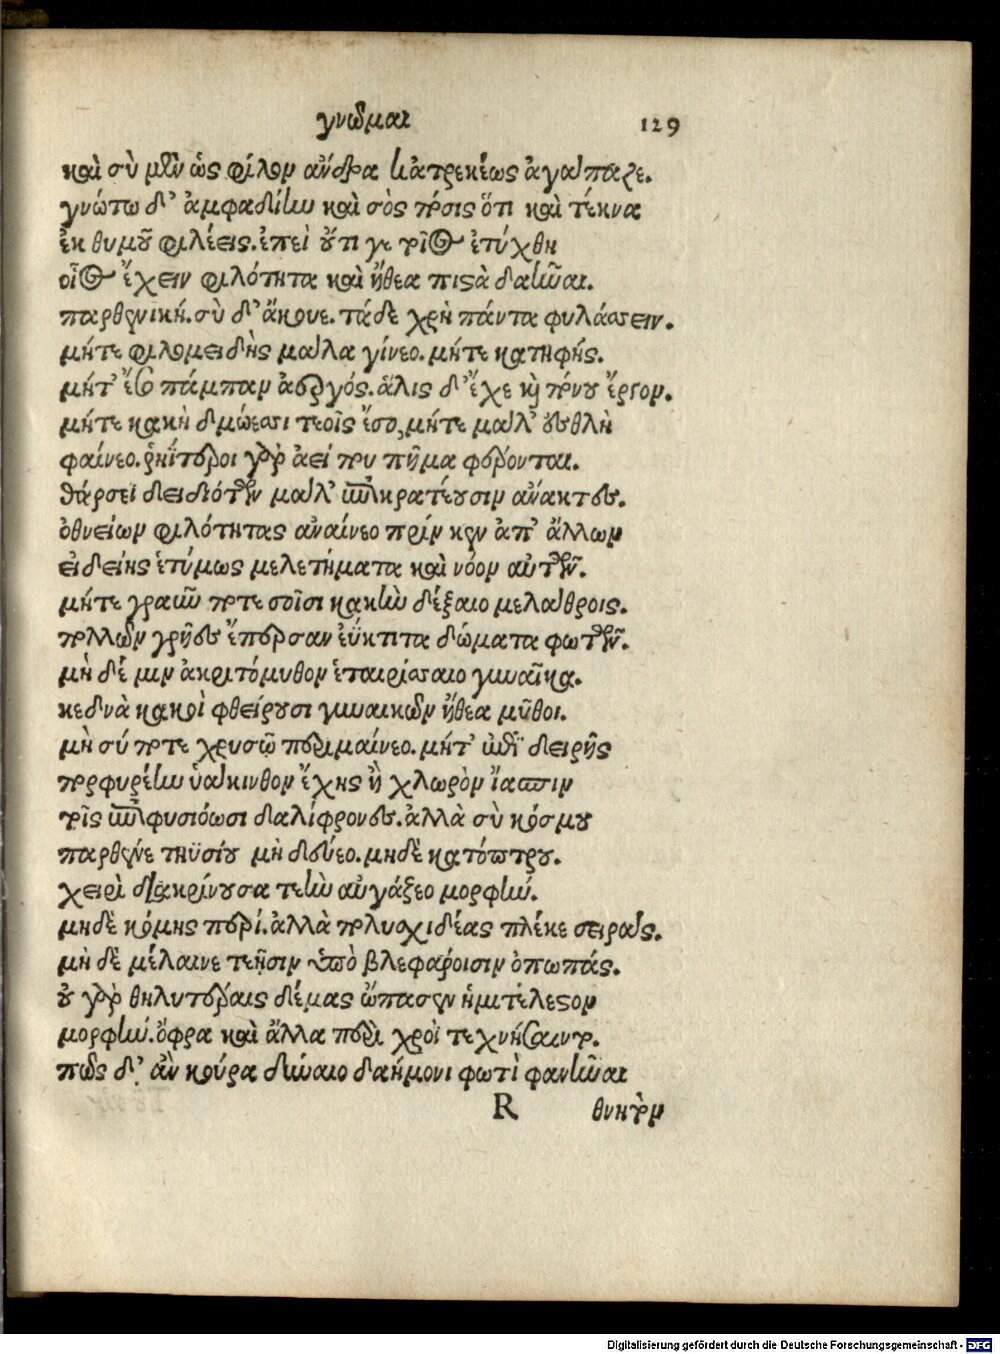 γνῶμαι 129
καὶ σὺ μὲν ὡς φίλον ἄνδρα ἀγάπαζε.
γνώτω δ' ἀμφαδίην καὶ σὸς πόσις ὅτι καὶ τέκνα
ἐκ θυμοῦ φιλέεις. ἐπεὶ οὔτι γε τοῖος ἐτύχθη
οἷος ἔχειν φιλότητα καὶ ἤθεα πιστὰ δαῆναι.
παρθενική. σὺ δ' ἄκουε. τάδε χρὴ πάντα φυλάσσειν.
μήτε φιλομειδὴς μάλα γίνεο. μήτε κατηφής.
μήτ' ἔσο πάμπαν ἀεργός. ἅλις δ' ἔχε καὶ πόνου ἔργον.
μήτε κακὴ δμώεσσι τεοῖς ἔσο, μήτε μάλ' ἐσθλὴ
φαίνεο. ῥηΐτεροι γὰρ ἀεί που πῆμα φέρονται.
θάρσεϊ δειδιότων μάλ' ἐπικρατέουσιν ἄνακτες.
ὀθνείων φιλότητας ἀναίνεο πρίν κεν ἀπ' ἄλλων
εἰδείης ἐτύμως μελετήματα καὶ νόον αὐτῶν.
μήτε γραῦν ποτε σοῖσι κακὴν δέξαιο μελάθροις.
πολλῶν γρῆες ἔπερσαν ἐΰκτιτα δώματα φωτῶν.
μὴ δέ μιν ἀκριτόμυθον ἑταιρίσσαιο γυναῖκα.
κεδνὰ κακοὶ φθείρουσι γυναικῶν ἤθεα μῦθοι.
μὴ σύ ποτε χρυσῷ περιμαίνεο. μήτ' ἐπὶ δειρῆς
πορφυρέην ὑάκινθον ἔχῃς ἢ χλωρὸν ἴασπιν
τοῖς ἐπιφυσιόωσι δαλίφρονες. ἀλλὰ σὺ κόσμου
παρθένε τηϋσίου μὴ δεύεο. μηδὲ κατόπτρου.
χειρὶ διακρίνουσα τεὴν αὐγάζεο μορφήν.
μηδὲ κόμης περί. ἀλλὰ πολυσχιδέας πλέκε σειράς.
μὴ δὲ μέλαινε τεῇσιν ὑπὸ βλεφάροισιν ὀπωπάς.
οὐ γὰρ θηλυτέραις δέμας ὤπασεν ἡμιτέλεστον
μορφήν. ὄφρα καὶ ἄλλα περὶ χροῒ τεχνήσαιντο.
πῶς δ' ἂν κούρα δύναιο δαήμονι φωτὶ φανῆναι
R θνητὸν
Digitalisierung gefördert durch die Deutsche Forschungsgemeinschaft - DFG